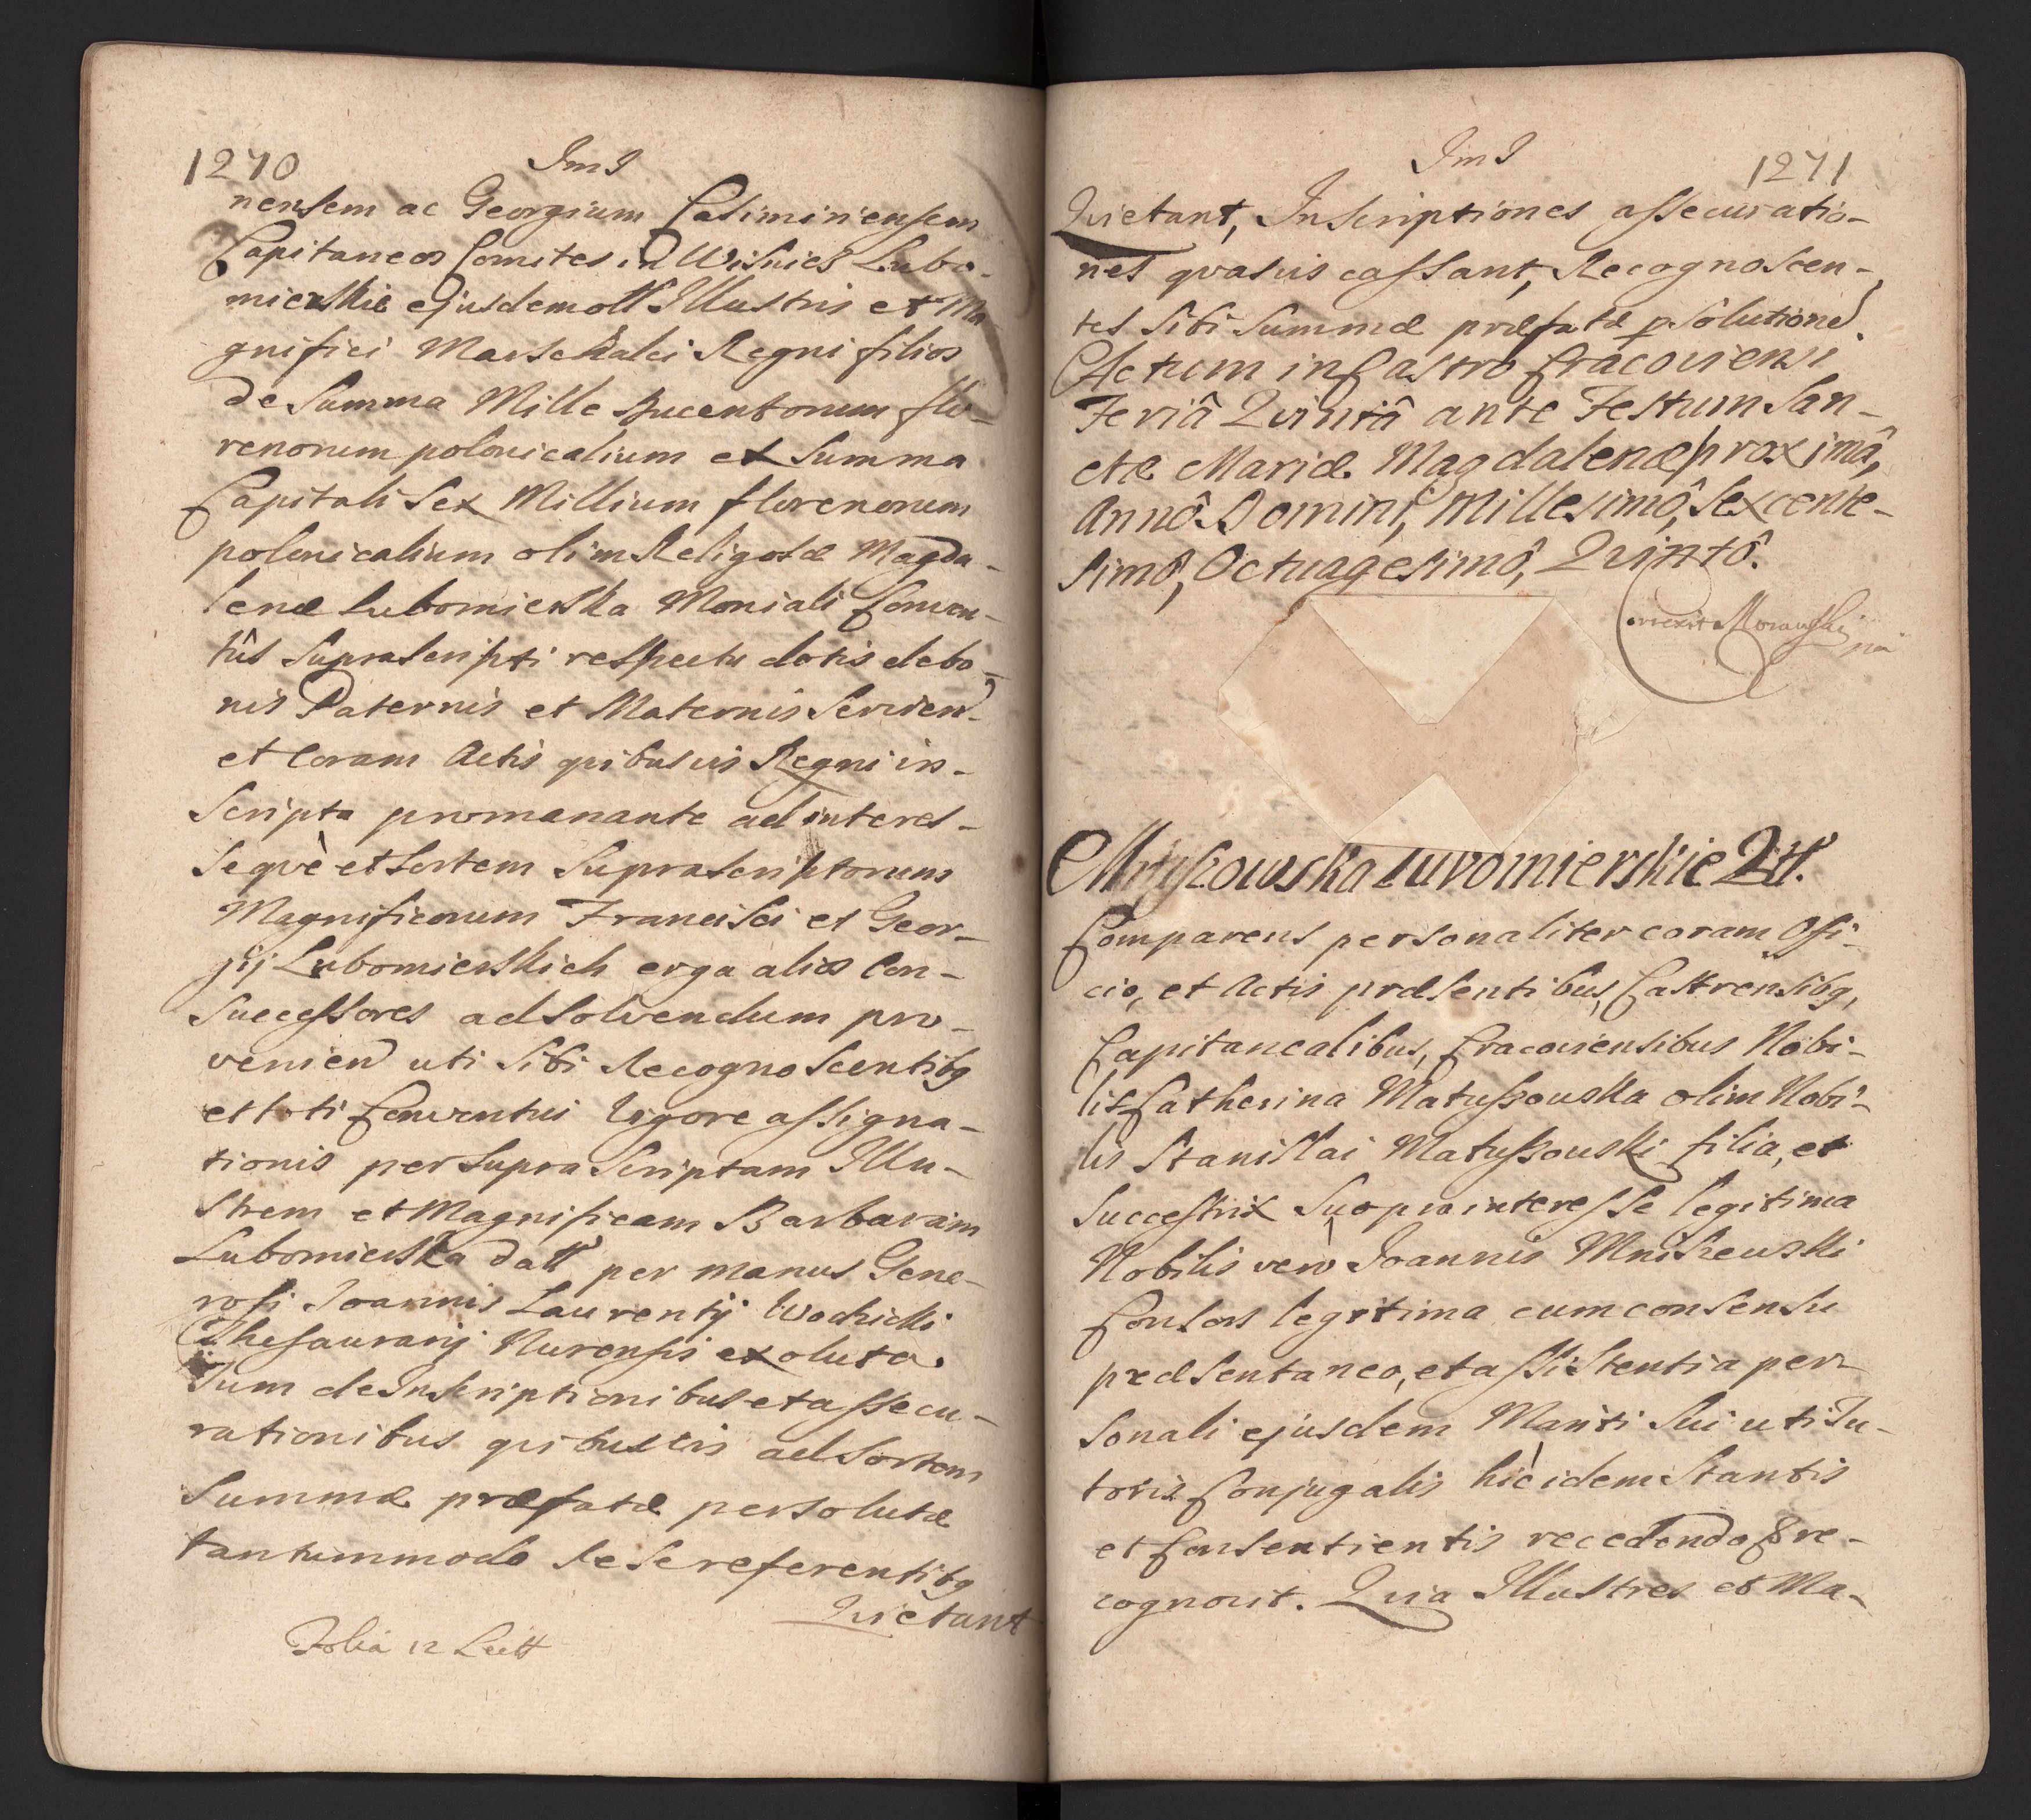 1270
Jm J
nensem ac Georgium Casiminiensem
Capitaneos Comites in Wisnicz Lubo-
mierskie ejusdem ott Illustris et Ma-
gnifici Marschalci Regni filios
de Summa Mille Ducentorum flo-
renorum polonicalium et Summa
Capitali Sex Millium florenorum
polonicalium olim Religosæ Magda-
lenæ Lubomierska Moniali Conven-
tûs Suprascripti respectu dotis debo-
nis Paternis et Maternis Servien
et Coram Actis quibusvis Regni in-
scripta promanante ad interes-
seqvè et Sortem Suprascriptorum
Magnificorum Francisci et Geor-
gij Lubomierskich erga alios Con-
Successores ad Solvendum pro-
venien uti Sibi Recognoscentibq
et toti Conventui Vigore assigna-
tionis per Supra Scriptam Illu-
strem et Magnificam Barbaram
Lubomierska datt per manus Gene-
rosi Joannis Laurentij Wodzicki
Thesaurarij Nurensis exoluta.
Tum de Inscriptionibus et assecu-
rationibus quibusvis ad Sortem
Summæ præfatæ persolutæ
tantummodo Sese referentibq
Quietant
Folia 12 Lutt
Jm J
1271
Quietant, Inscriptiones assecuratio-
nes qvasvis cassant, Recognoscen-
tes Sibi Summæ præfatæ pSolutione.
Actum in Castro Cracoviensi
Feriâ Quintâ ante Festum San-
ctæ Mariæ Magdalenæ proximâ,
Annô Domini, Millesimô, Sexcente-
simô, Octuagesimô, Quintô.
Correxit Morawski
Matyszowska Lubomierskie Qtt.
Comparens personaliter coram Offi-
cio, et Actis præsentibus, Castrensibq,
Capitanealibus, Cracoviensibus Nobi-
lis Catherina Matyszowska olim Nobi-
lis Stanislai Matyszowski filia, et
Successtrix Suo pro interesse legitima
Nobilis verò Joannis Mniszewski
Consors legitima cum consensu
præsentaneo, et assistentia per-
sonali ejusdem Mariti Sui uti Tu-
toris Conjugalis hìc idem Stantis
et Consentientis recedendo & re-
cognovit. Quia Illustres et Ma-